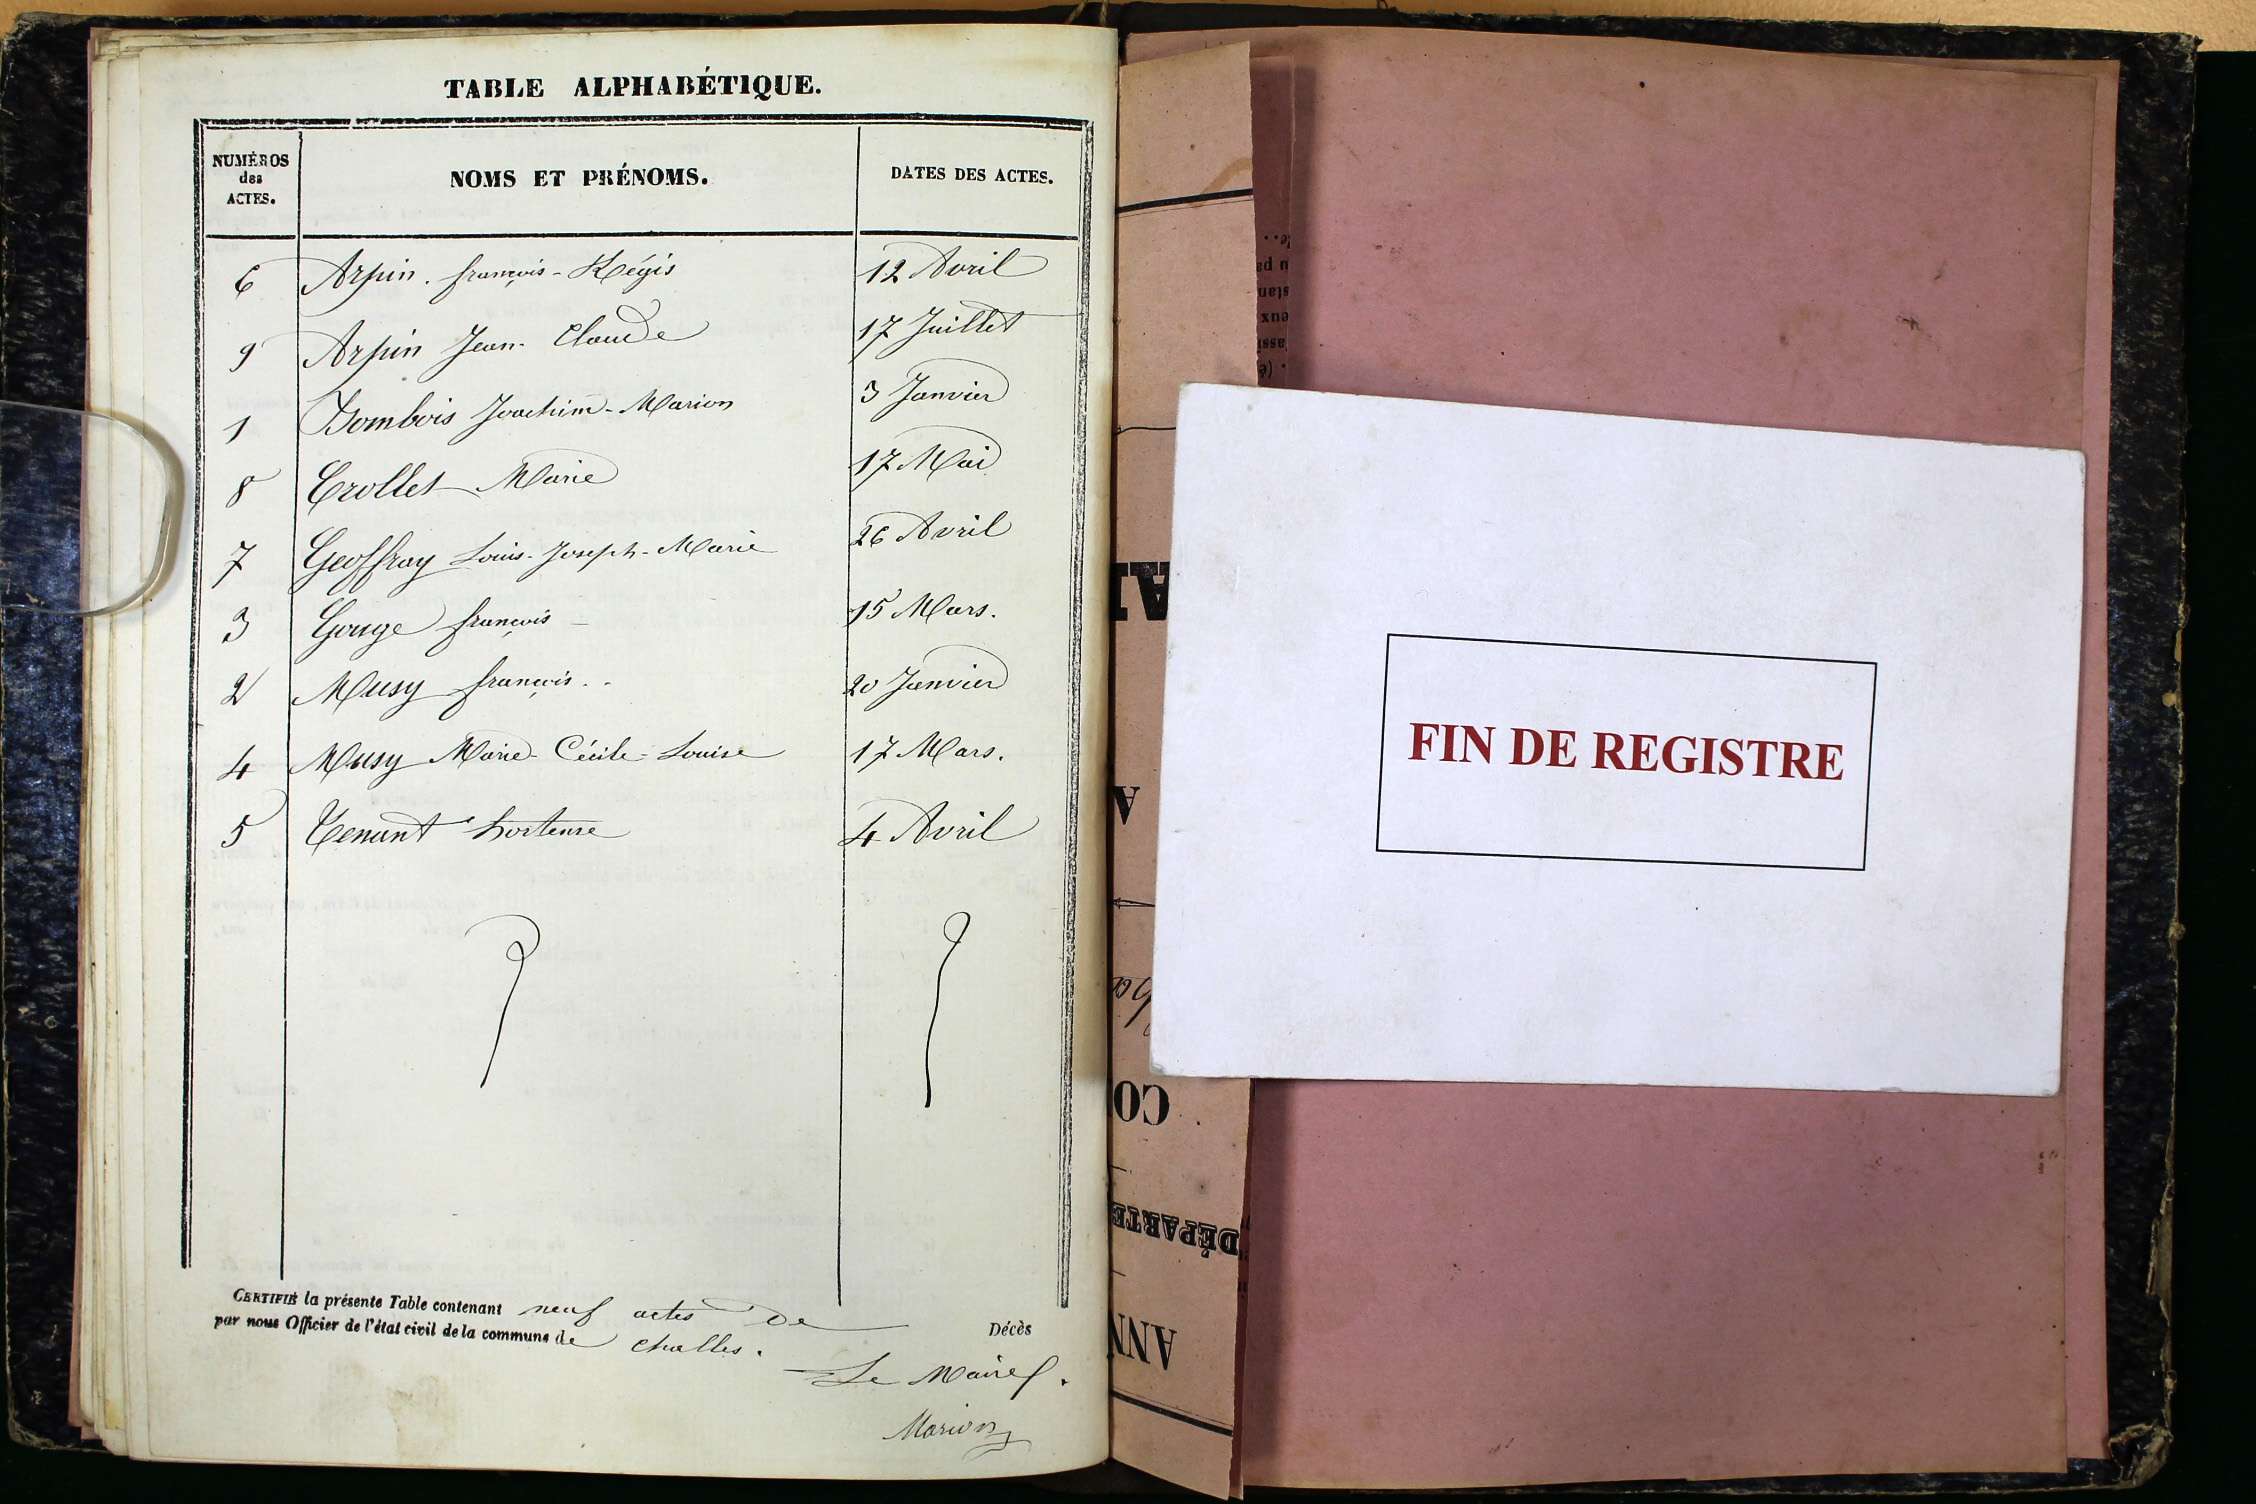 TABLE ALPHABÉTIQUE.
NUMÉROS des ACTES. NOMS ET PRÉNOMS. DATES DES ACTES.
6 Arpin. françois-Régis 12 Avril
9 Arpin Jean-Claude 17 Juillet
1 Bombois Joachim-Marion 3 Janvier
8 Crollet Marie 17 Mai
7 Geoffray Louis-Joseph-Marie 26 Avril
3 Gouge françois 15 Mars.
2 Musy françois.. 20 Janvier
4 Musy Marie-Cécile-Louise 17 Mars.
5 Tenant hortense 4 Avril
CERTIFIÉ la présente Table contenant neuf actes de Décès
par nous Officier de l'état civil de la commune de challes.
Le Maire.
Marion
FIN DE REGISTRE
DÉPARTE
ANN
CO